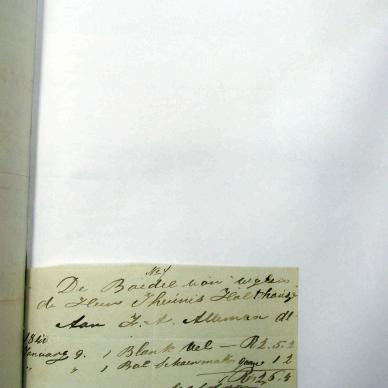 De Boedel van wylen
de Heer Theunis Holthausz
Aan F. A. Alleman dt
1840
January 9. 1 Blank Vel — R 2.5.2
" " 1 Bal Schoenmak gare 1 2